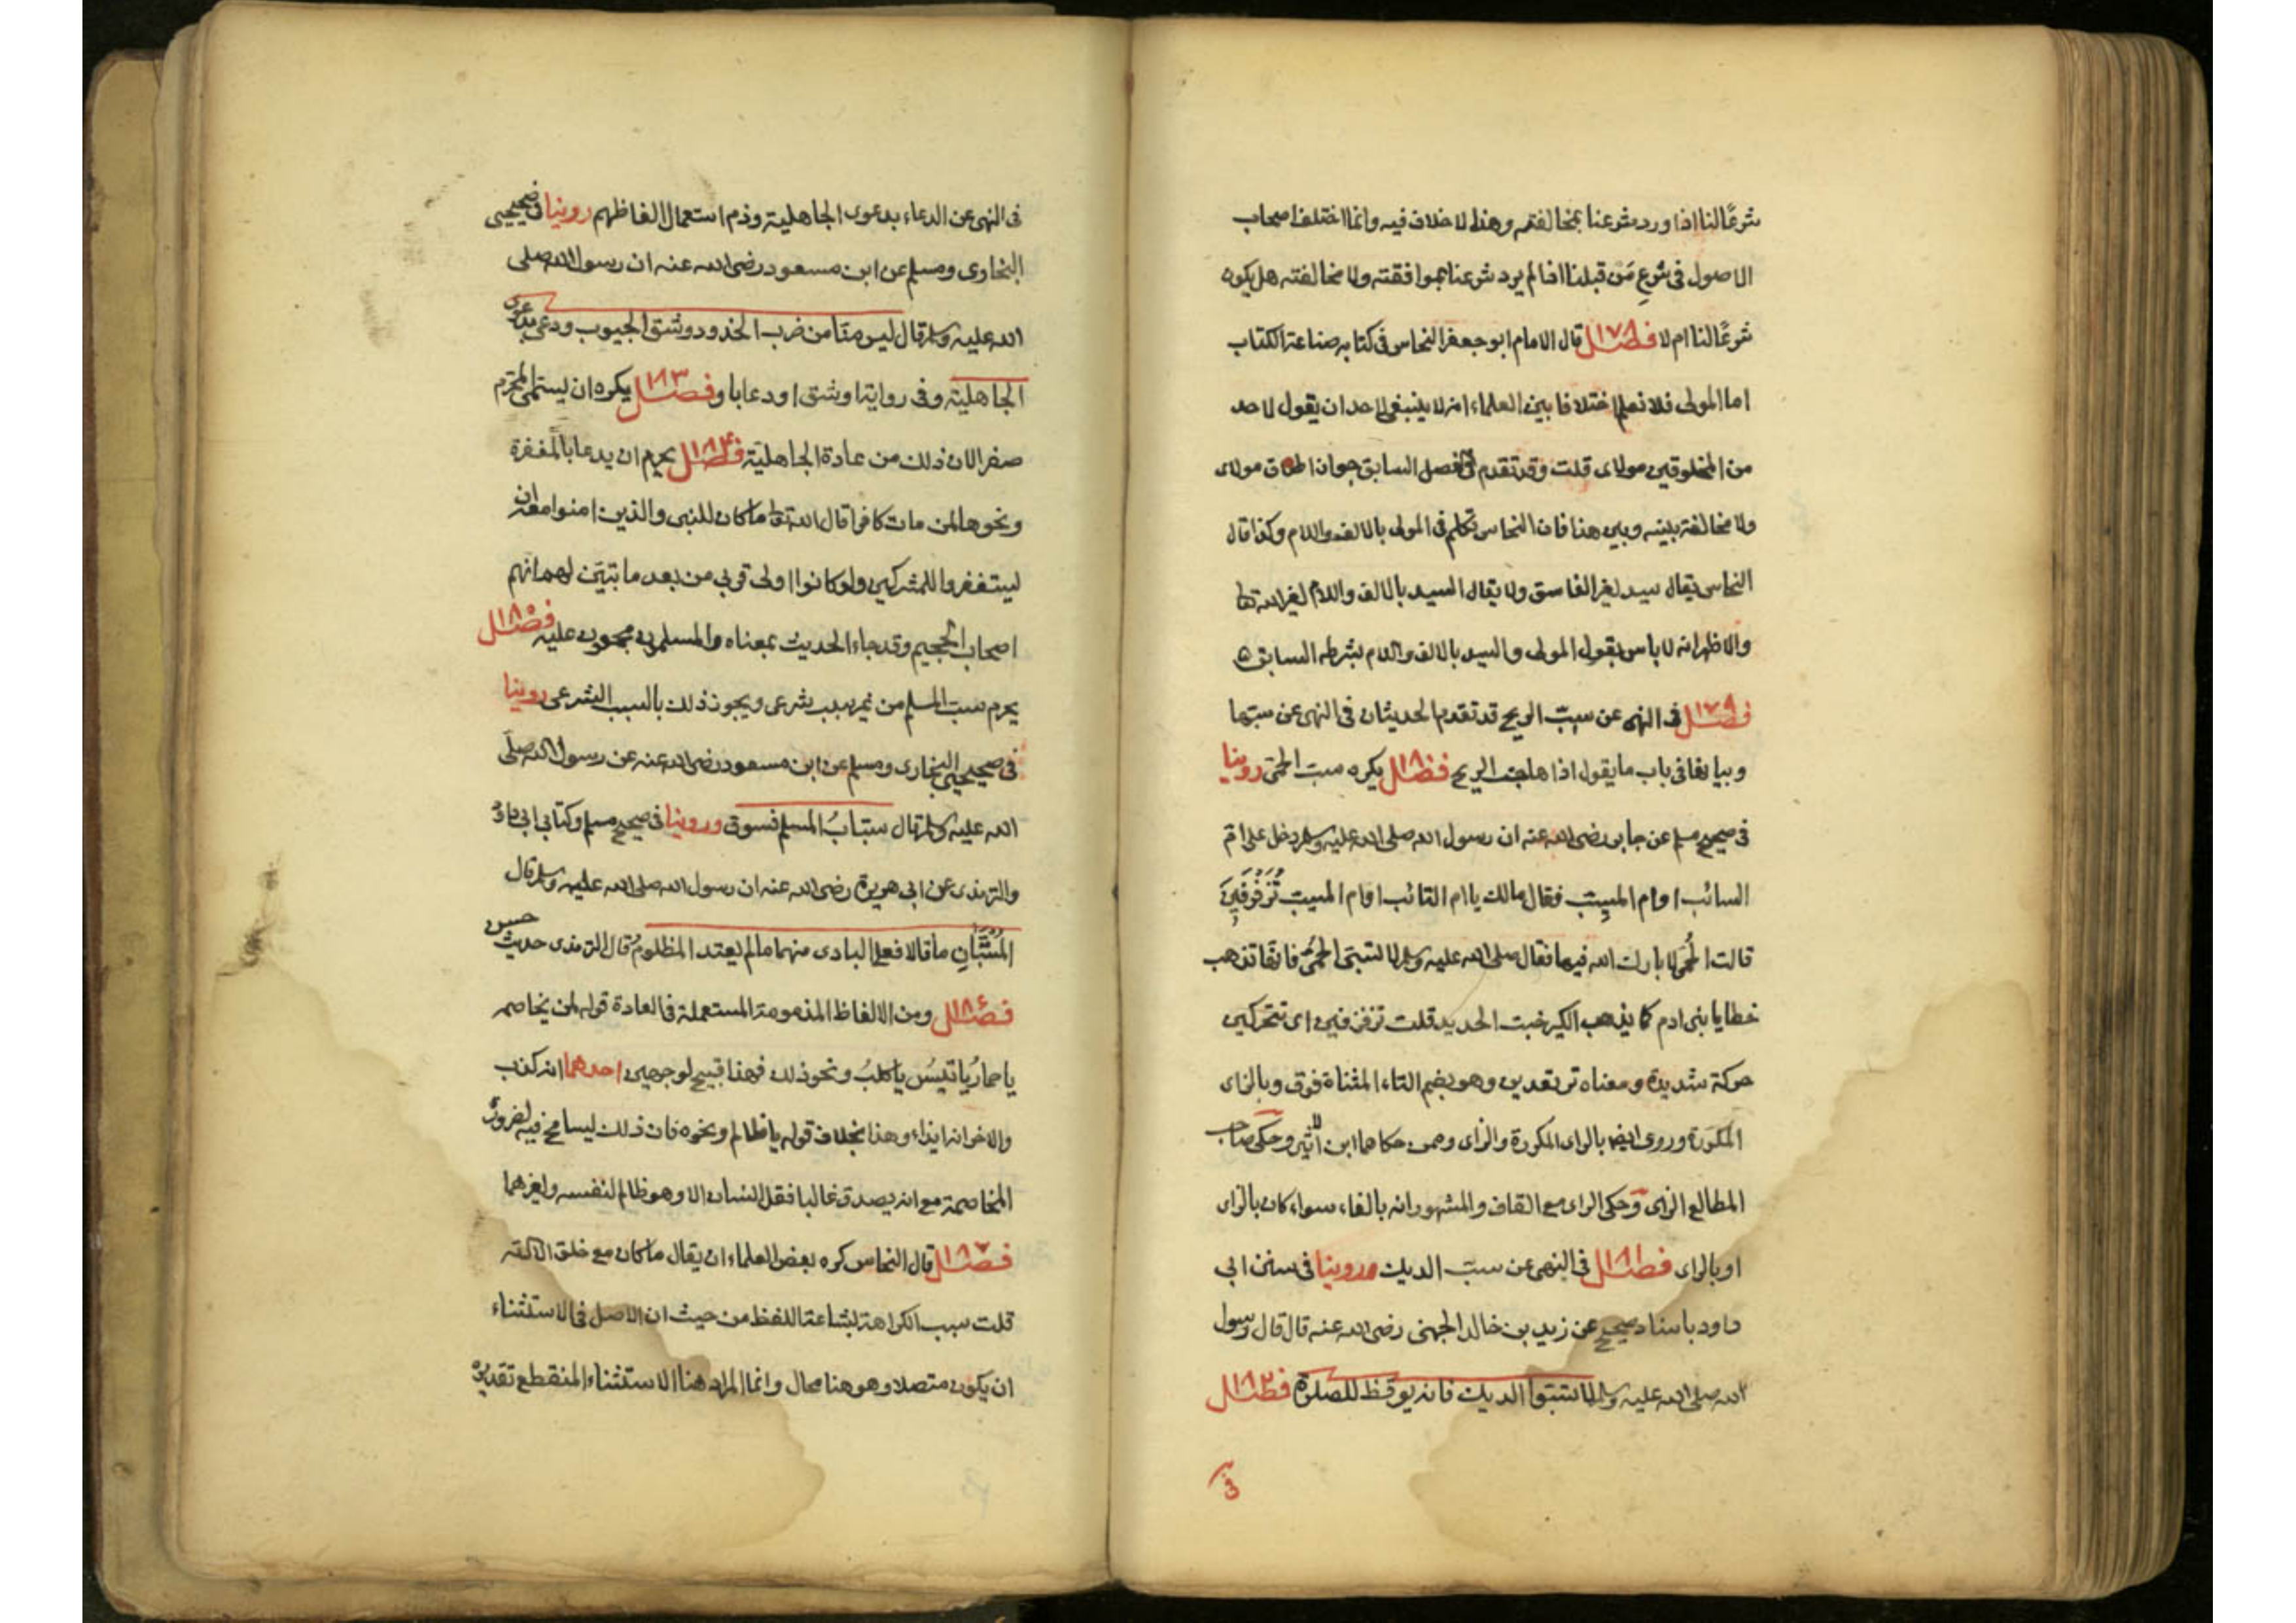 شرعًا لنا اذا ورد شرعنا بمخالفته وهذا لا خلاف فيه وانما اختلف اصحاب
الاصول فى شرع مَن قبلنا اذا لم يرد شرعنا بموافقته ولا مخالفته هل يكون
شرعًا لنا ام لا فصل ١٧٨ قال الامام ابو جعفر النحاس فى كتابه صناعة الكتاب
اما المولى فلا نعلم اختلافا بين العلماء انه لا ينبغى لاحد ان يقول لاحد
من المخلوقين مولاى قلت وقد تقدم فى الفصل السابق جواز اطلاق مولاى
ولا مخالفة بينه وبين هذا فان النحاس تكلم فى المولى بالالف واللام وكذا قال
النحاس يقال سيد لغير الفاسق ولا يقال السيد بالالف واللام لغير الله تعا
والاظهر انه لا باس بقول المولى والسيد بالالف واللام بشرطه السابق
فصل ١٧٩ فى النهى عن سبّ الريح قد تقدم الحديثان فى النهى عن سبّها
وبيانها فى باب ما يقول اذا هاجت الريح فصل ١٨٠ يكره سبّ الحمّى روينا
فى صحيح مسلم عن جابر رضى الله عنه ان رسول الله صلى الله عليه وسلم دخل على امّ
السائب او ام المسيب فقال مالك يا ام السائب او ام المسيب تُزَفْزِفِينَ
قالت الحُمّى لا بارك الله فيها فقال صلى الله عليه وسلم لا تسبّى الحمّى فانها تذهب
خطايا بنى ادم كما يذهب الكير خبث الحديد قلت تزفزفين اى تتحركين
حركة شديدة ومعناه ترتعدين وهو بضم التاء المثناة فوق وبالزاى
المكررة وروى ايضا بالراى المكررة والزاى وممن حكاهما ابن الاثير وحكى صاحب
المطالع الزاى وحكى الراى مع القاف والمشهور انه بالفاء سواء كان بالزاى
او بالراى فصل ١٨١ فى النهى عن سبّ الديك وروينا فى سنن ابى
داود باسناد صحيح عن زيد بن خالد الجهنى رضى الله عنه قال قال رسول
الله صلى الله عليه وسلم لا تسبّوا الديك فانه يوقظ للصلوة فصل ١٨٢
فى
فى النهى عن الدعاء بدعوى الجاهلية وذم استعمال الفاظهم روينا فى صحيحى
البخارى ومسلم عن ابن مسعود رضى الله عنه ان رسول الله صلى
الله عليه وسلم قال ليس منّا من ضرب الخدود وشق الجيوب ودعى بدعوى
الجاهلية وفى رواية او شق او دعا باو فصل ١٨٣ يكره ان يسمّى المحرّم
صفرا لان ذلك من عادة الجاهلية فصل ١٨٤ يحرم ان يدعا بالمغفرة
ونحوها لمن مات كافرا قال الله تعا ما كان للنبى والذين امنوا معه ان
يستغفروا للمشركين ولو كانوا اولى قربى من بعد ما تبيّن لهم انهم
اصحاب الجحيم وقد جاء الحديث بمعناه والمسلمون مجمعون عليه فصل ١٨٥
يحرم سبّ المسلم من غير سبب شرعى ويجوز ذلك بالسبب الشرعى روينا
فى صحيحى البخارى ومسلم عن ابن مسعود رضى الله عنه عن رسول الله صلّى
الله عليه وسلم قال سبابُ المسلم فسوق وروينا فى صحيح مسلم وكتابى ابى داود
والترمذى عن ابى هريرة رضى الله عنه ان رسول الله صلى الله عليه وسلم قال
المُسْتَبّانِ ما قالا فعلى البادى منهما ما لم يعتد المظلومُ قال الترمذى حديث حسن
فصل ١٨٦ ومن الالفاظ المذمومة المستعملة فى العادة قوله لمن يخاصمه
يا حمارُ يا تيسُ يا كلبُ ونحو ذلك فهذا قبيح لوجهين احدهما انه كذب
والاخر انه ايذاء وهذا بخلاف قوله يا ظالم ونحوه فان ذلك يسامح فيه لضرورة
المخاصمة مع انه يصدق غالبا فقل انسان الا وهو ظالم لنفسه ولغيرهما
فصل ١٨٧ قال النحاس كره بعض العلماء ان يقال ما كان مع خلق الا الله
قلت سبب الكراهة بشاعة اللفظ من حيث ان الاصل فى الاستثناء
ان يكون متصلا وهو هنا محال وانما المراد هنا الاستثناء المنقطع تقديره